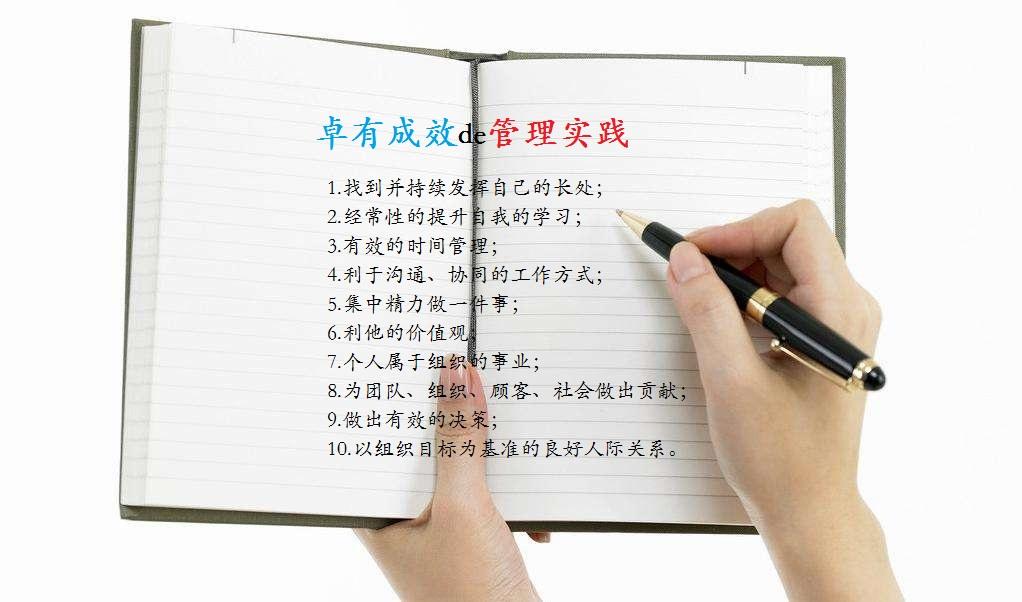 卓有成效de管理实践
1.找到并持续发挥自己的长处；
2.经常性的提升自我的学习；
3.有效的时间管理；
4.利于沟通、协同的工作方式；
5.集中精力做一件事；
6.利他的价值观；
7.个人属于组织的事业；
8.为团队、组织、顾客、社会做出贡献；
9.做出有效的决策；
10.以组织目标为基准的良好人际关系。